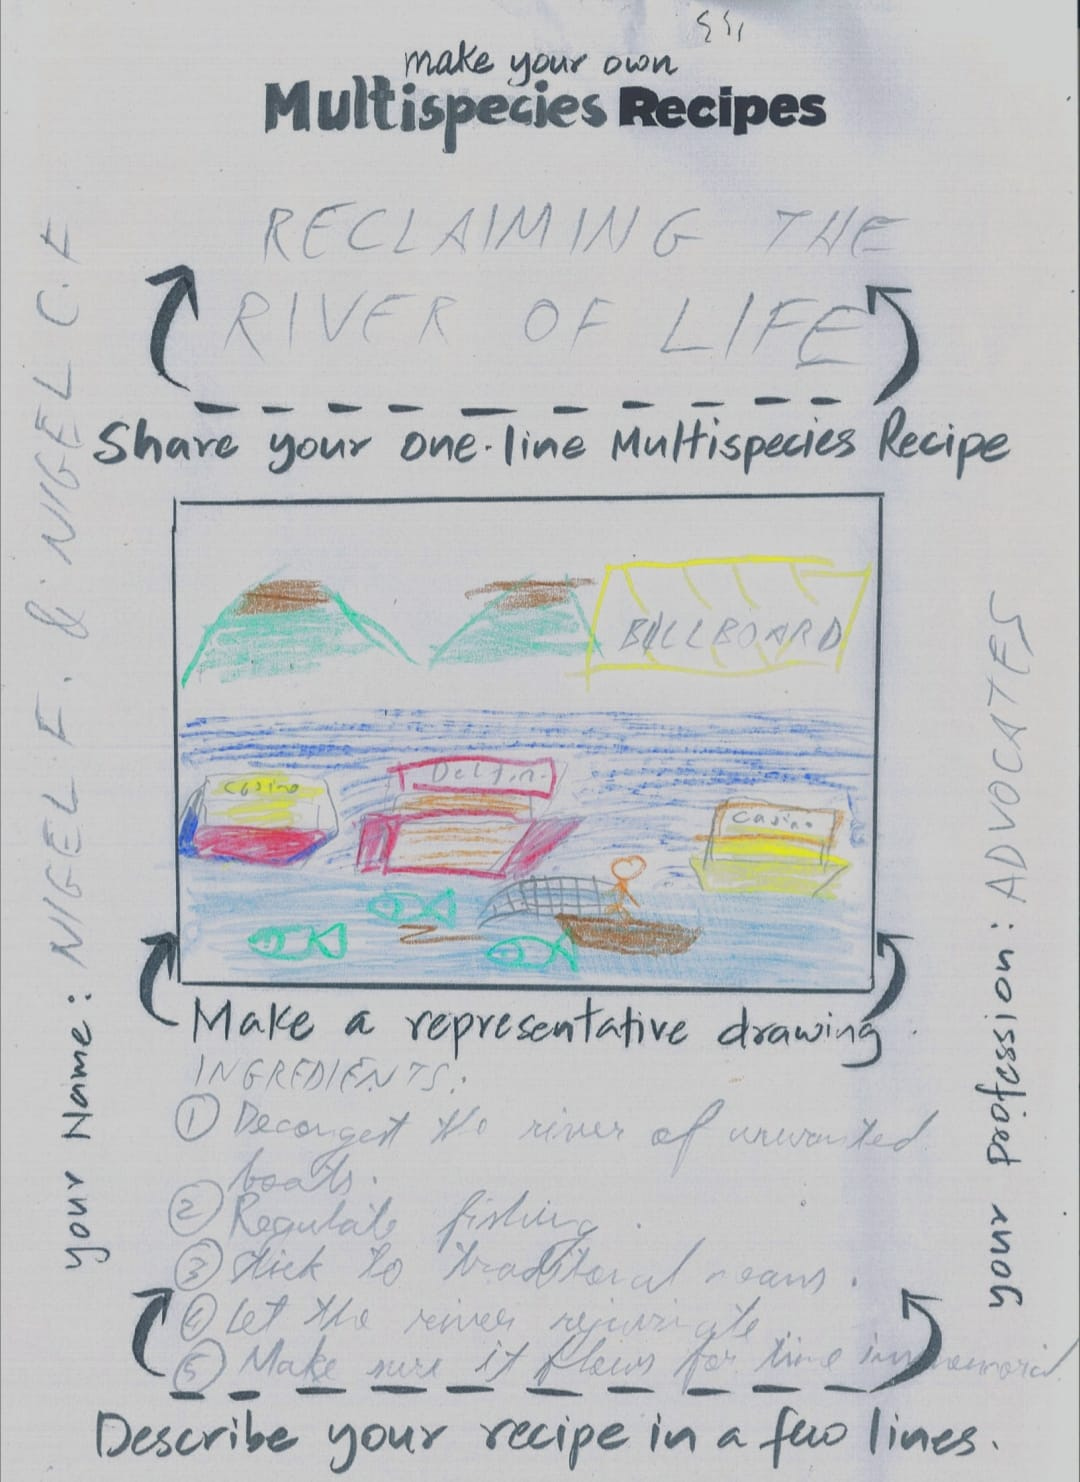 make your own
Multispecies Recipes
RECLAIMING THE
RIVER OF LIFE
Share your one-line Multispecies Recipe
BILLBOARD
Casino
Delfin
Casino
Make a representative drawing
INGREDIENTS:
① Decongest the river of unwanted
boats.
② Regulate fishing.
③ Stick to traditional means.
④ Let the river
⑤ Make sure it flows for time immemorial.
Describe your recipe in a few lines.
your Name: NIGEL F. & NIGEL C.F.
your profession: ADVOCATES